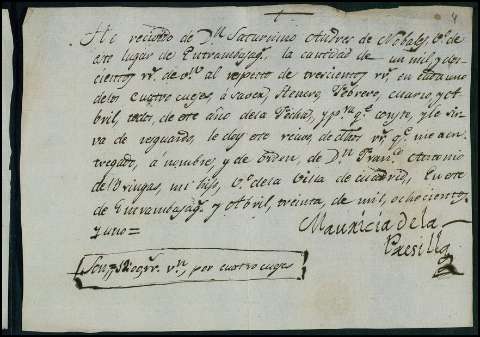 He recivido de Dn Saturnino Andres de Nobales, Vo de
este lugar de Entrambasags la cantidad de un mil y dos
cientos rs de vn al respecto de trecientos rs en cada uno
de los cuatro
Febrero, y A
bril, todos, de este año de la fecha, y pa qe conste, y le sir
va de resguardo, le doy este recivo, de dhos rs qe me a en
tregado, a nombre, y de orden, de Dn Franco Antonio
mi hijo, Vo de la Villa de Madrid, en este
de Entrambasags y Abril, treinta de mil, ochocientos,
y uno=
Mauricia de la
Son 1200 rs vn, por cuatro